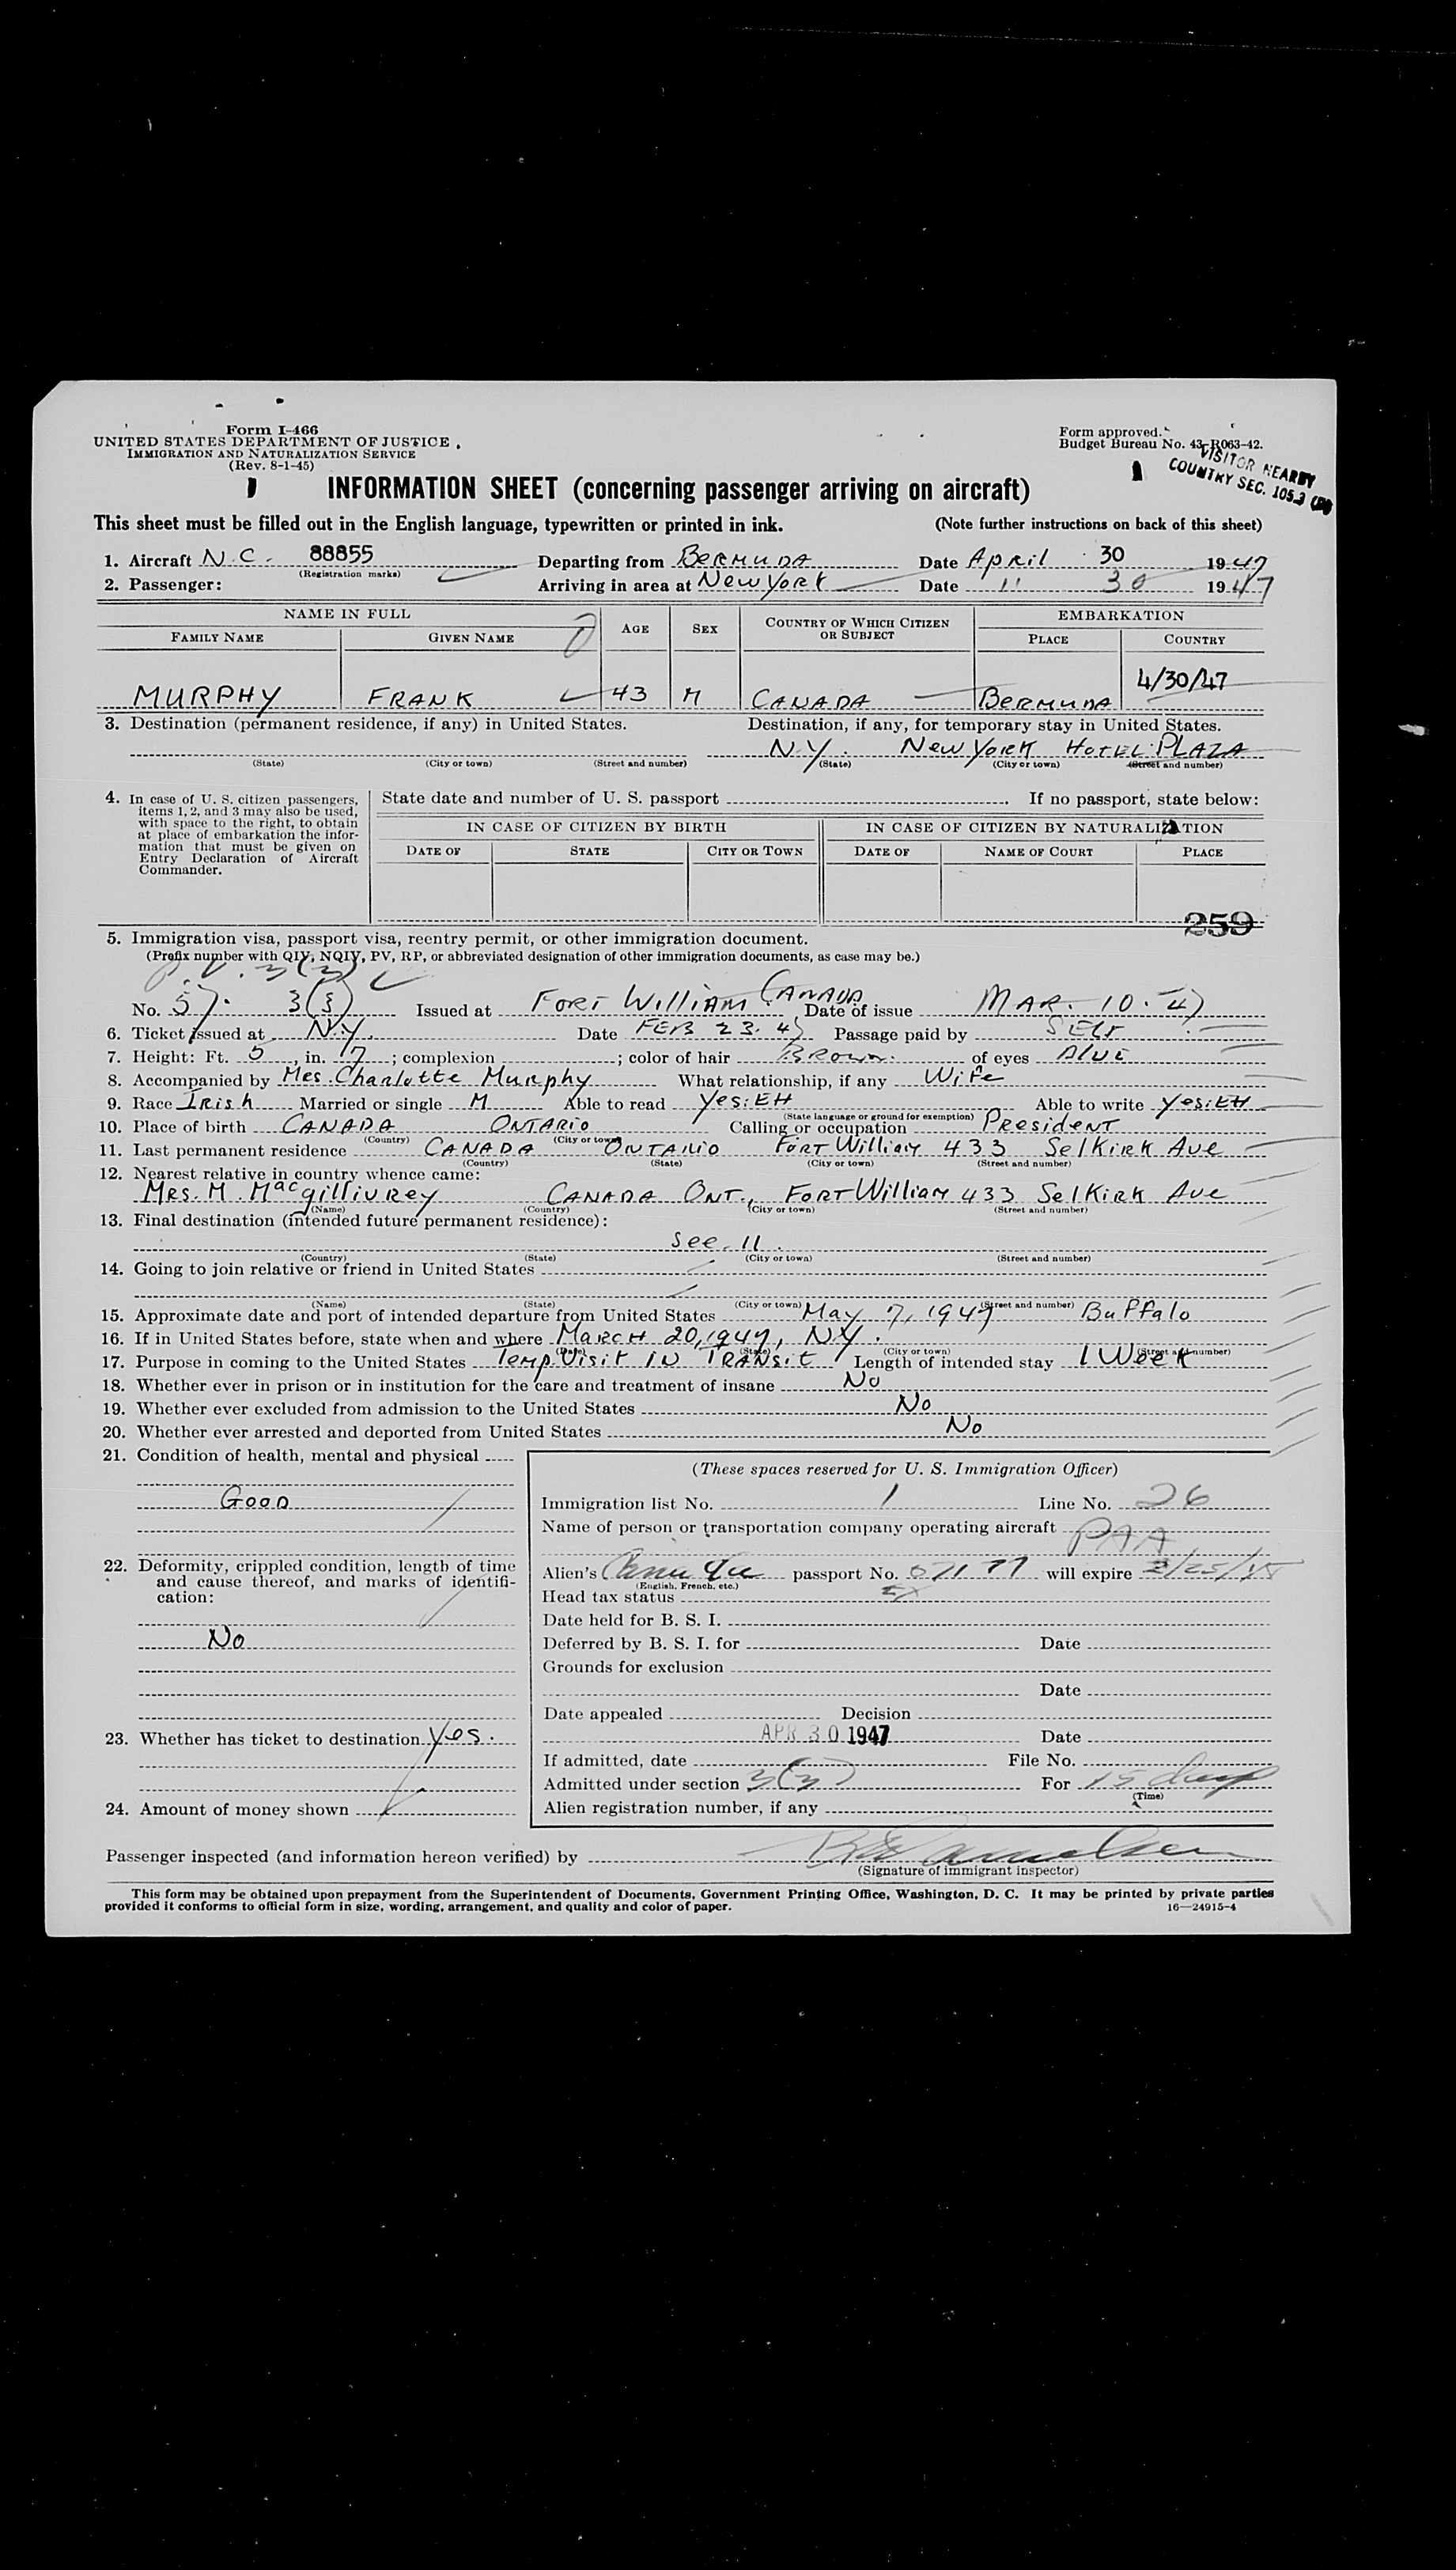 Form I-466
UNITED STATES DEPARTMENT OF JUSTICE
IMMIGRATION AND NATURALIZATION SERVICE
(Rev. 8-1-45)
Form approved.
Budget Bureau No. 43-R063-42.
VISITOR NEARBY
COUNTRY SEC. 105.3
INFORMATION SHEET (concerning passenger arriving on aircraft)
This sheet must be filled out in the English language, typewritten or printed in ink. (Note further instructions on back of this sheet)
1. Aircraft N.C. 88855 Departing from BERMUDA Date April 30 1947
(Registration marks)
2. Passenger: Arriving in area at New York Date 11 30 1947
NAME IN FULL AGE SEX COUNTRY OF WHICH CITIZEN OR SUBJECT EMBARKATION
FAMILY NAME GIVEN NAME PLACE COUNTRY
4/30/47
MURPHY FRANK 43 M CANADA BERMUDA
3. Destination (permanent residence, if any) in United States. Destination, if any, for temporary stay in United States.
N.Y. New York HOTEL PLAZA
(State) (City or town) (Street and number) (State) (City or town) (Street and number)
4. In case of U. S. citizen passengers, items 1, 2, and 3 may also be used, with space to the right, to obtain at place of embarkation the information that must be given on Entry Declaration of Aircraft Commander.
State date and number of U. S. passport If no passport, state below:
IN CASE OF CITIZEN BY BIRTH IN CASE OF CITIZEN BY NATURALIZATION
DATE OF STATE CITY OR TOWN DATE OF NAME OF COURT PLACE
259
5. Immigration visa, passport visa, reentry permit, or other immigration document.
(Prefix number with QIV, NQIV, PV, RP, or abbreviated designation of other immigration documents, as case may be.)
P.V. 3(3)
No. 57. 3(3) Issued at FORT WILLIAM CANADA Date of issue MAR. 10. 47
6. Ticket issued at N.Y. Date FEB 23. 47 Passage paid by SELF
7. Height: Ft. 5, in. 7; complexion ; color of hair BROWN. of eyes Blue
8. Accompanied by Mrs. Charlotte Murphy What relationship, if any Wife
9. Race Irish Married or single M Able to read Yes: EH Able to write Yes: EH
(State language or ground for exemption)
10. Place of birth CANADA ONTARIO Calling or occupation President
(Country) (City or town)
11. Last permanent residence CANADA ONTARIO FORT William 433 Selkirk Ave
(Country) (State) (City or town) (Street and number)
12. Nearest relative in country whence came:
MRS. M. Macgillivrey CANADA ONT., FORT William 433 Selkirk Ave
(Name) (Country) (City or town) (Street and number)
13. Final destination (intended future permanent residence):
See 11.
(Country) (State) (City or town) (Street and number)
14. Going to join relative or friend in United States
(Name) (State) (City or town) (Street and number)
15. Approximate date and port of intended departure from United States May 7, 1947 Buffalo
16. If in United States before, state when and where MARCH 20, 1947, N.Y.
(Date) (State) (City or town) (Street and number)
17. Purpose in coming to the United States Temp. Visit IN TRANSIT Length of intended stay 1 Week
18. Whether ever in prison or in institution for the care and treatment of insane No
19. Whether ever excluded from admission to the United States No
20. Whether ever arrested and deported from United States No
21. Condition of health, mental and physical
GOOD
22. Deformity, crippled condition, length of time and cause thereof, and marks of identification:
No
23. Whether has ticket to destination Yes.
24. Amount of money shown
(These spaces reserved for U. S. Immigration Officer)
Immigration list No. 1 Line No. 26
Name of person or transportation company operating aircraft
PAA
Alien's passport No. will expire
(English, French, etc.)
Head tax status
Date held for B. S. I.
Deferred by B. S. I. for Date
Grounds for exclusion
Date
Date appealed Decision
APR 30 1947 Date
If admitted, date File No.
Admitted under section 3(3) For 15 days
(Time)
Alien registration number, if any
Passenger inspected (and information hereon verified) by
(Signature of immigrant inspector)
This form may be obtained upon prepayment from the Superintendent of Documents, Government Printing Office, Washington, D. C. It may be printed by private parties
provided it conforms to official form in size, wording, arrangement, and quality and color of paper. 16—24915-4